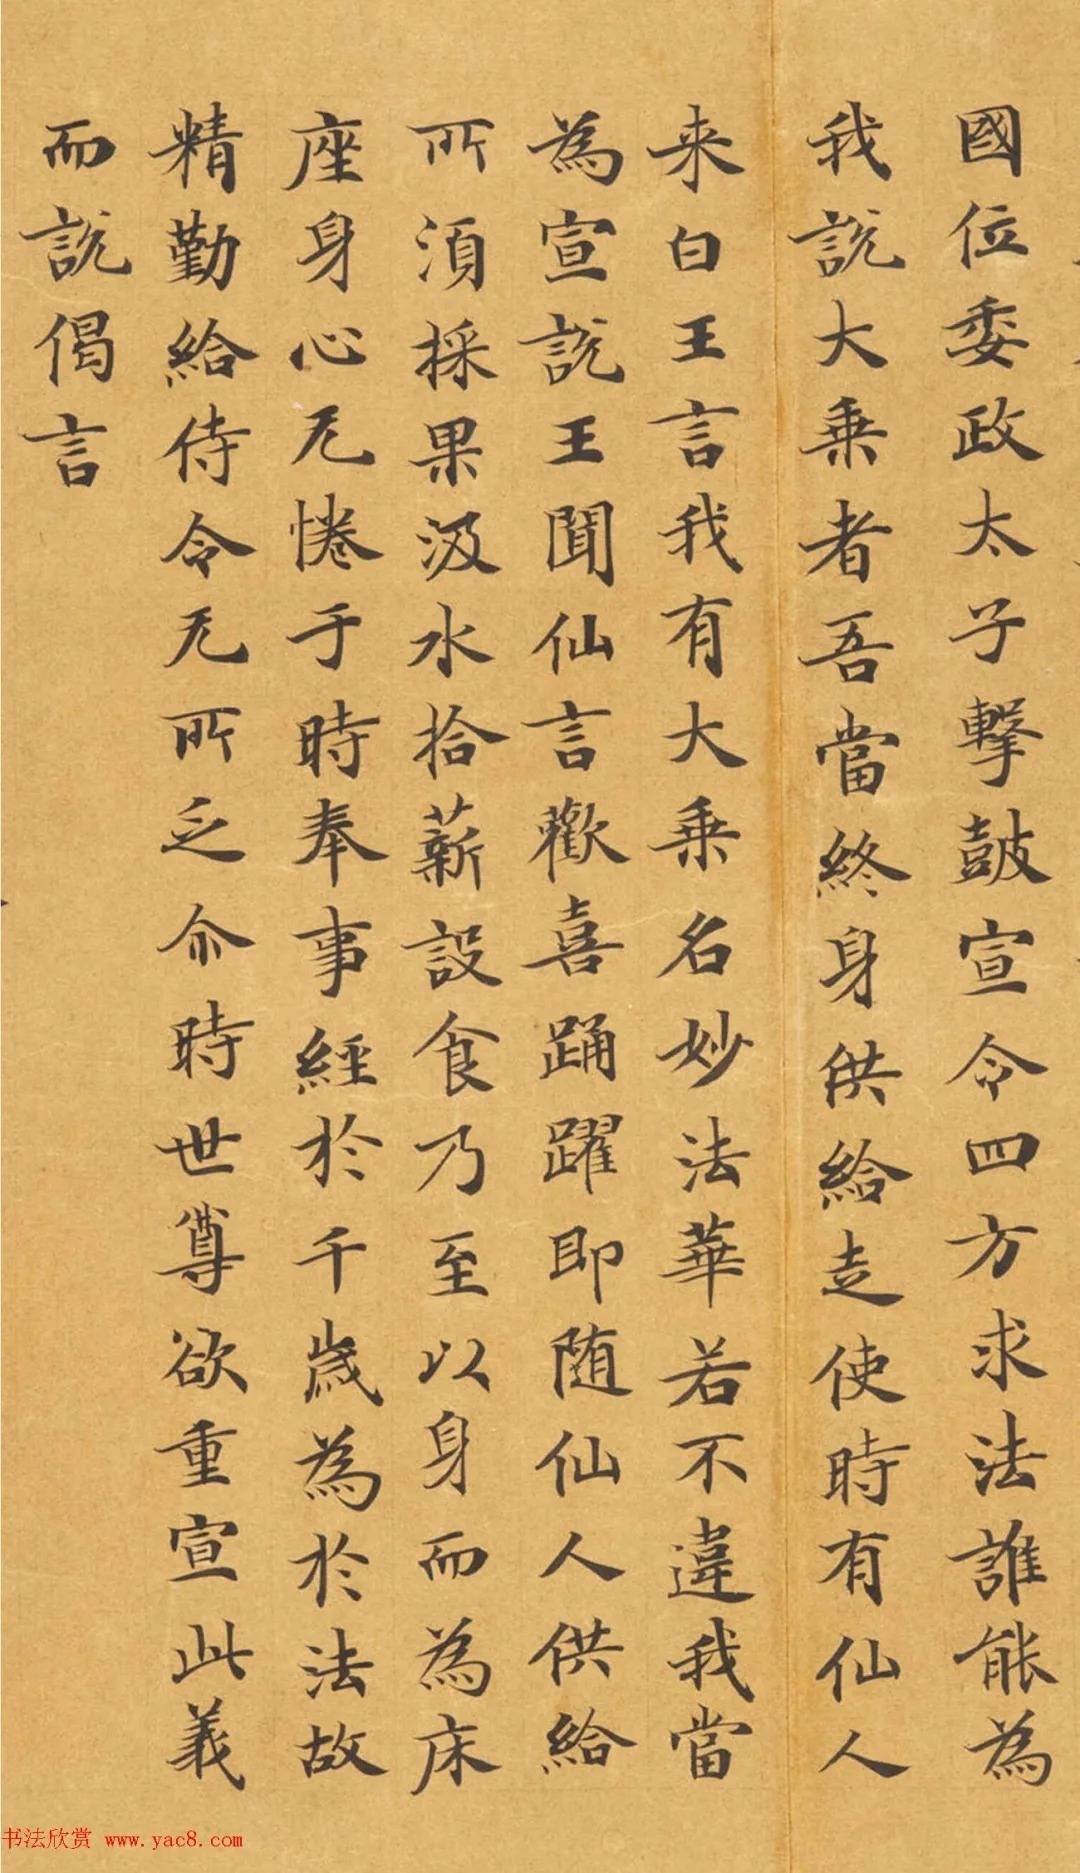 國位委政太子擊皷宣令四方求法誰能為
我說大乗者吾當終身供給走使時有仙人
来白王言我有大乗名妙法華若不違我當
為宣說王聞仙言歡喜踊躍即随仙人供給
所湏採果汲水拾薪設食乃至以身而為床
座身心无惓于時奉事經於千歲為於法故
精勤給侍令无所乏尒時世尊欲重宣此義
而說偈言
书法欣赏 www.yac8.com